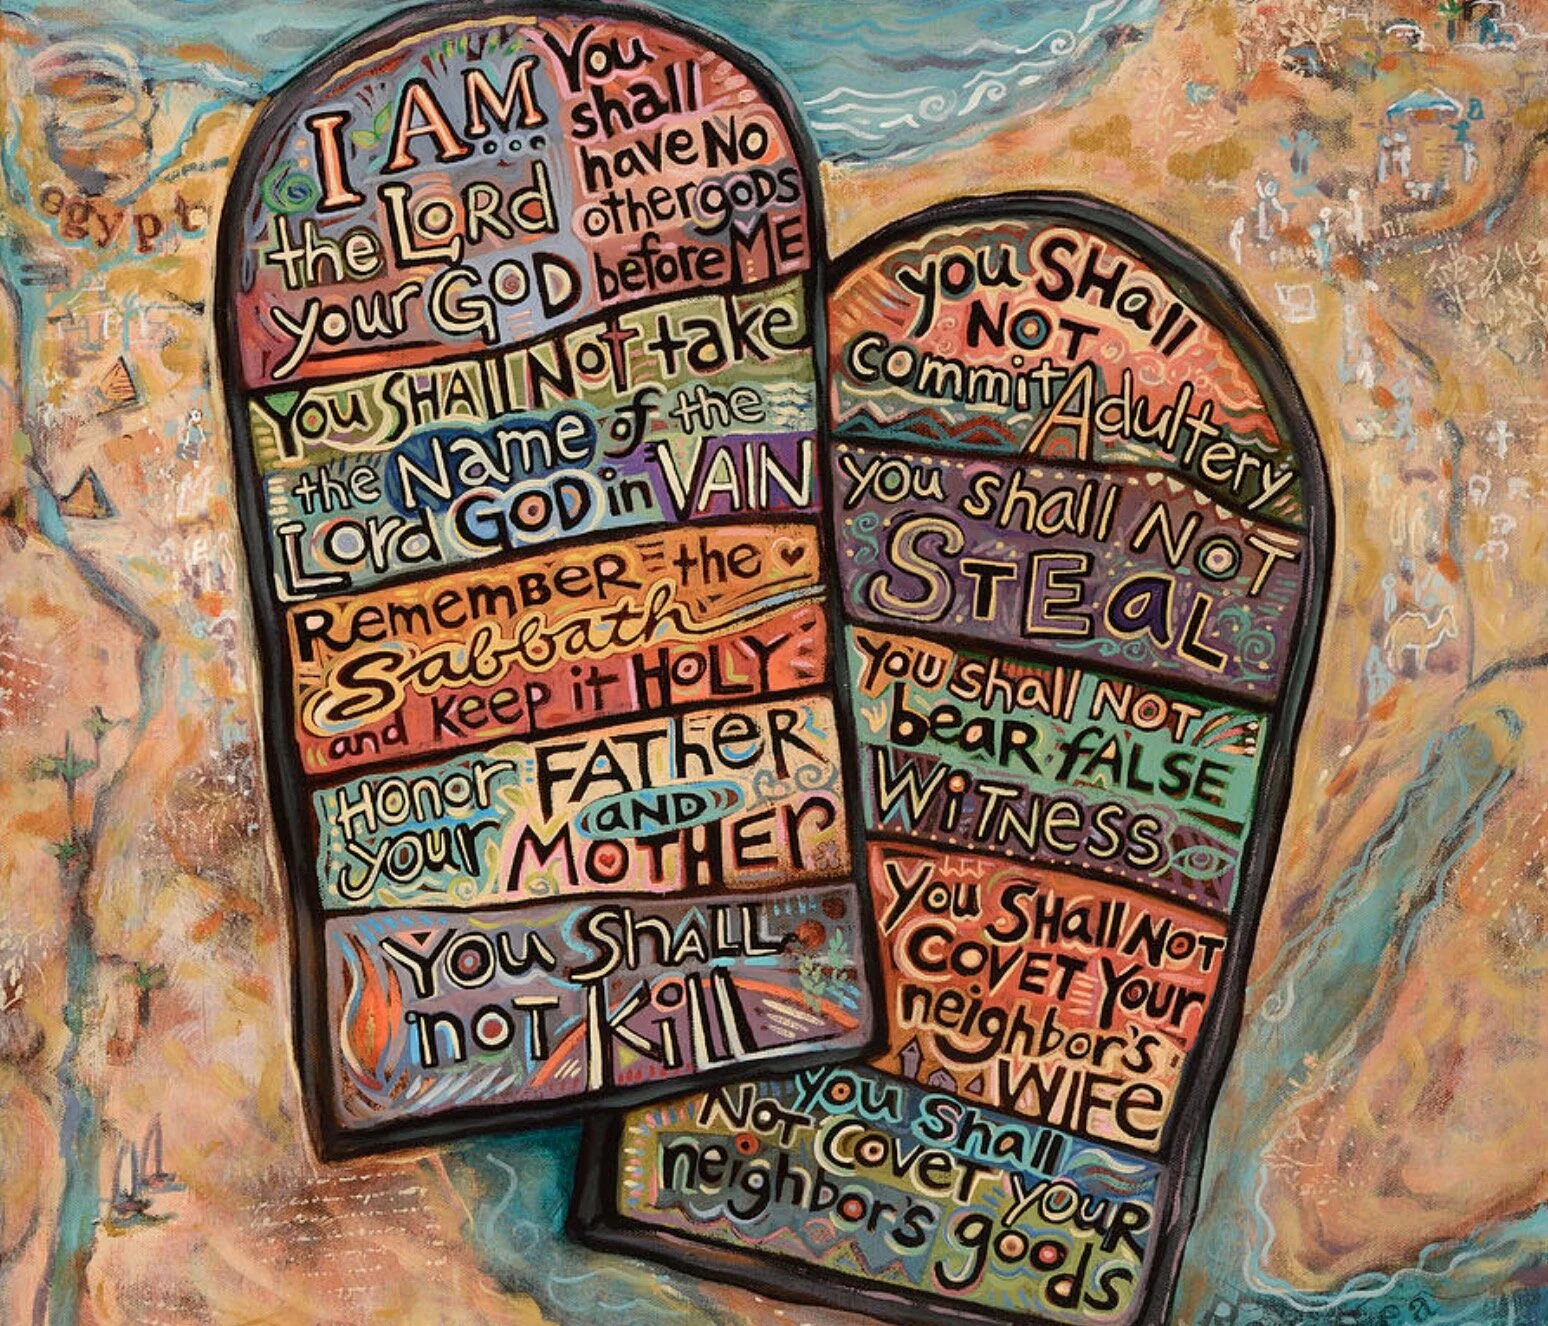 egypt
I AM...
the LORd
your GOD
You
shall
have No
other gods
before ME
You SHAll Not take
the Name of the
Lord GOD in VAIN
Remember the
Sabbath
and keep it HOLY
Honor FATher
your AND
MOTHEr
You ShALL
not Kill
you SHall
NOT
commit Adultery
you shall NOT
STEaL
you shall NOT
beaR fALSE
WiTNess
You SHall NoT
COVET Your
neighbor's
WIFe
you Shall
Not Covet youR
neighbor's goods